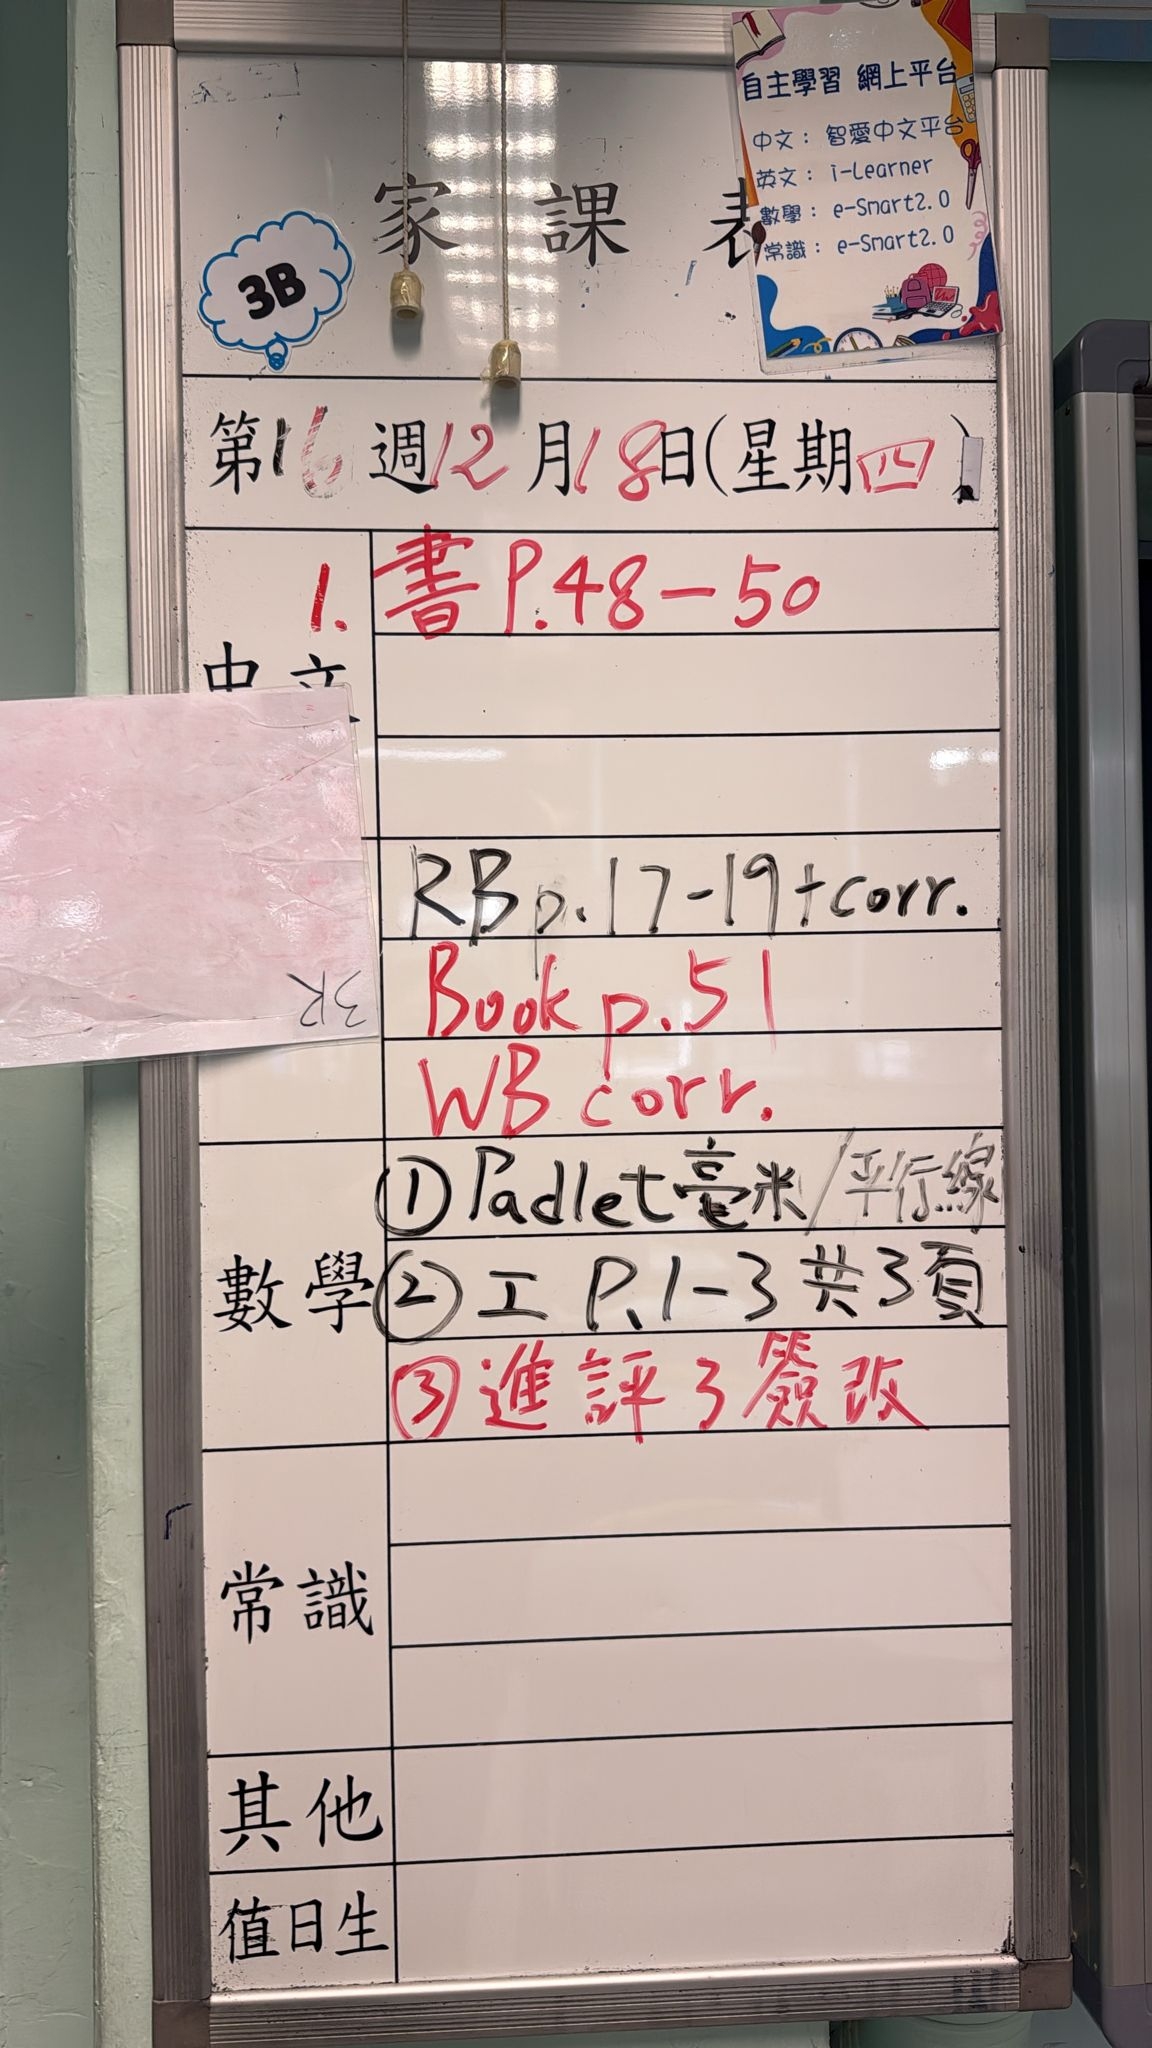 自主學習 網上平台
中文： 智愛中文平台
英文： i-Learner
數學： e-Smart2.0
常識： e-Smart2.0
家課表
3B
第16週12月18日(星期四)
中文
1. 書 P.48-50
RB p.17-19+corr.
Book p.51
WB corr.
3R
數學
① Padlet毫米/平行線
② 工 P.1-3 共3頁
③ 進評3簽改
常識
其他
值日生